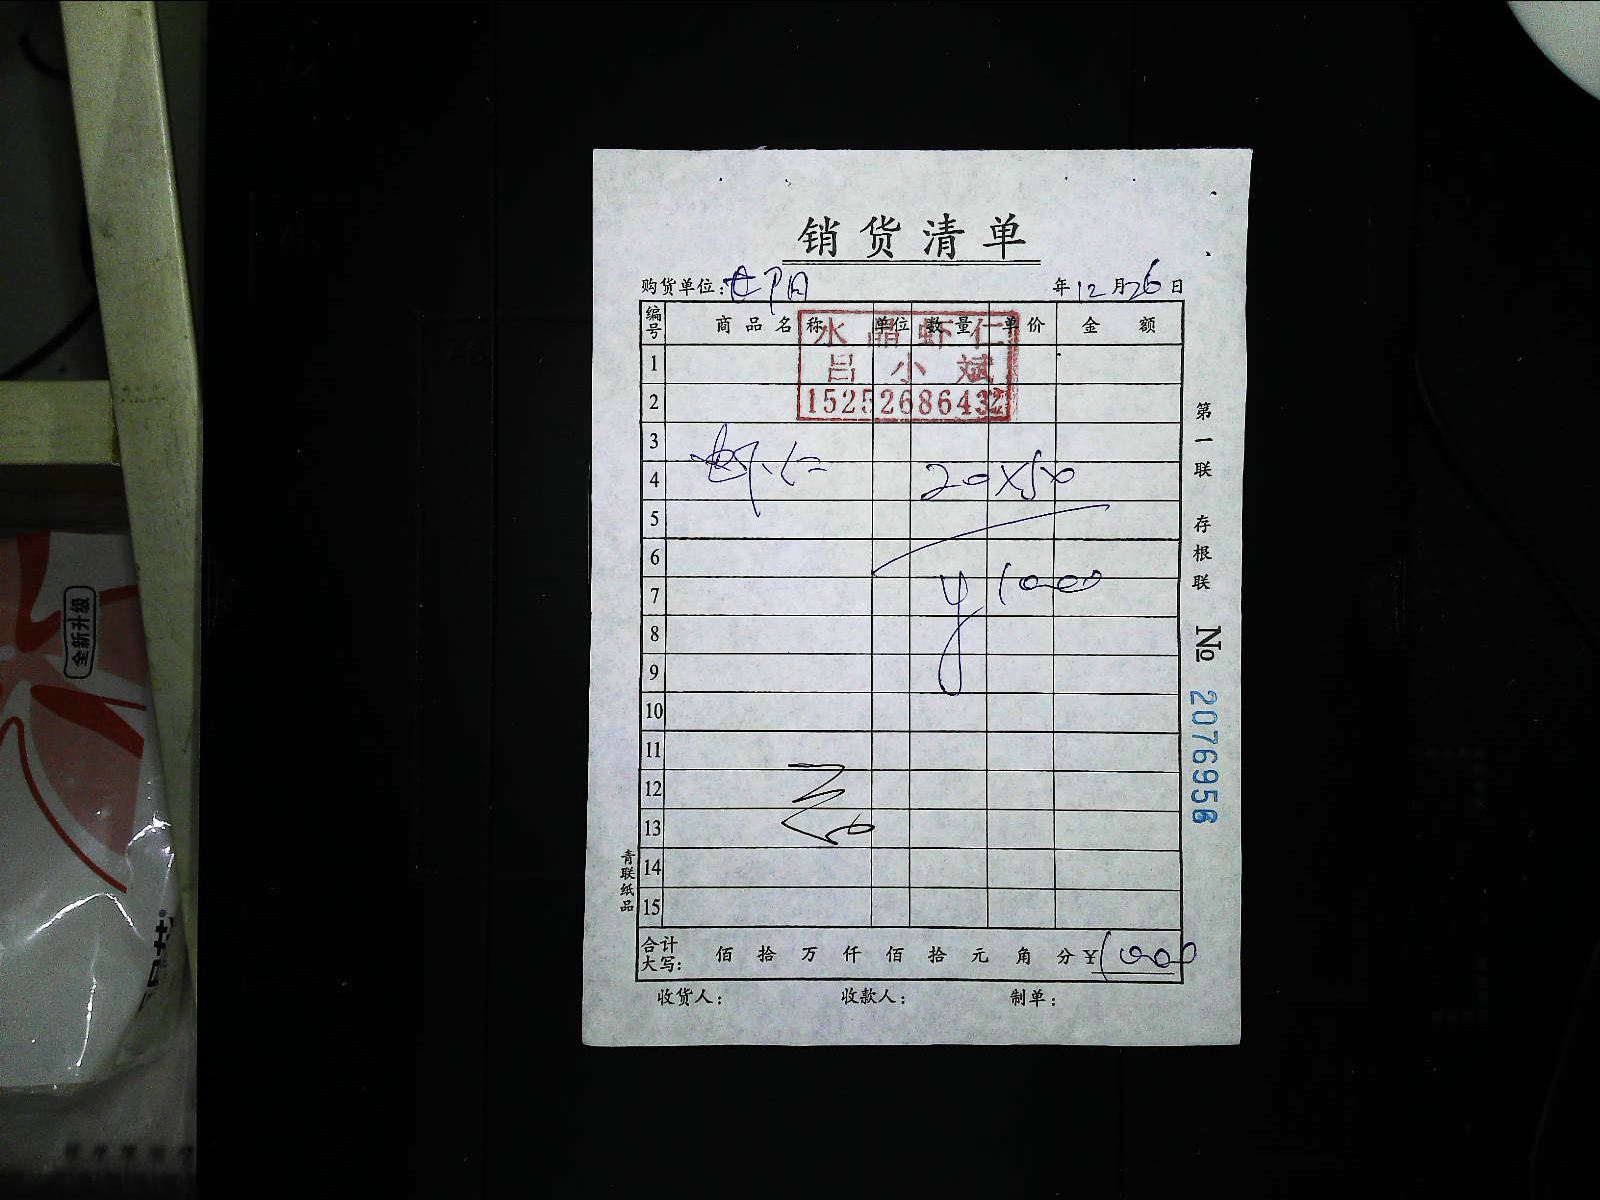 销货清单
购货单位: 年12月26日
编号 商品名称 单位 数量 单价 金额
水晶虾仁
吕小斌
15252686432
1
2
3
虾仁 20×50
4
5
6
¥1000
7
8
9
10
11
12
13
14
15
合计大写: 佰 拾 万 仟 佰 拾 元 角 分 ¥1000
收货人: 收款人: 制单:
第一联 存根联
№ 2076956
青联纸品
全新升级